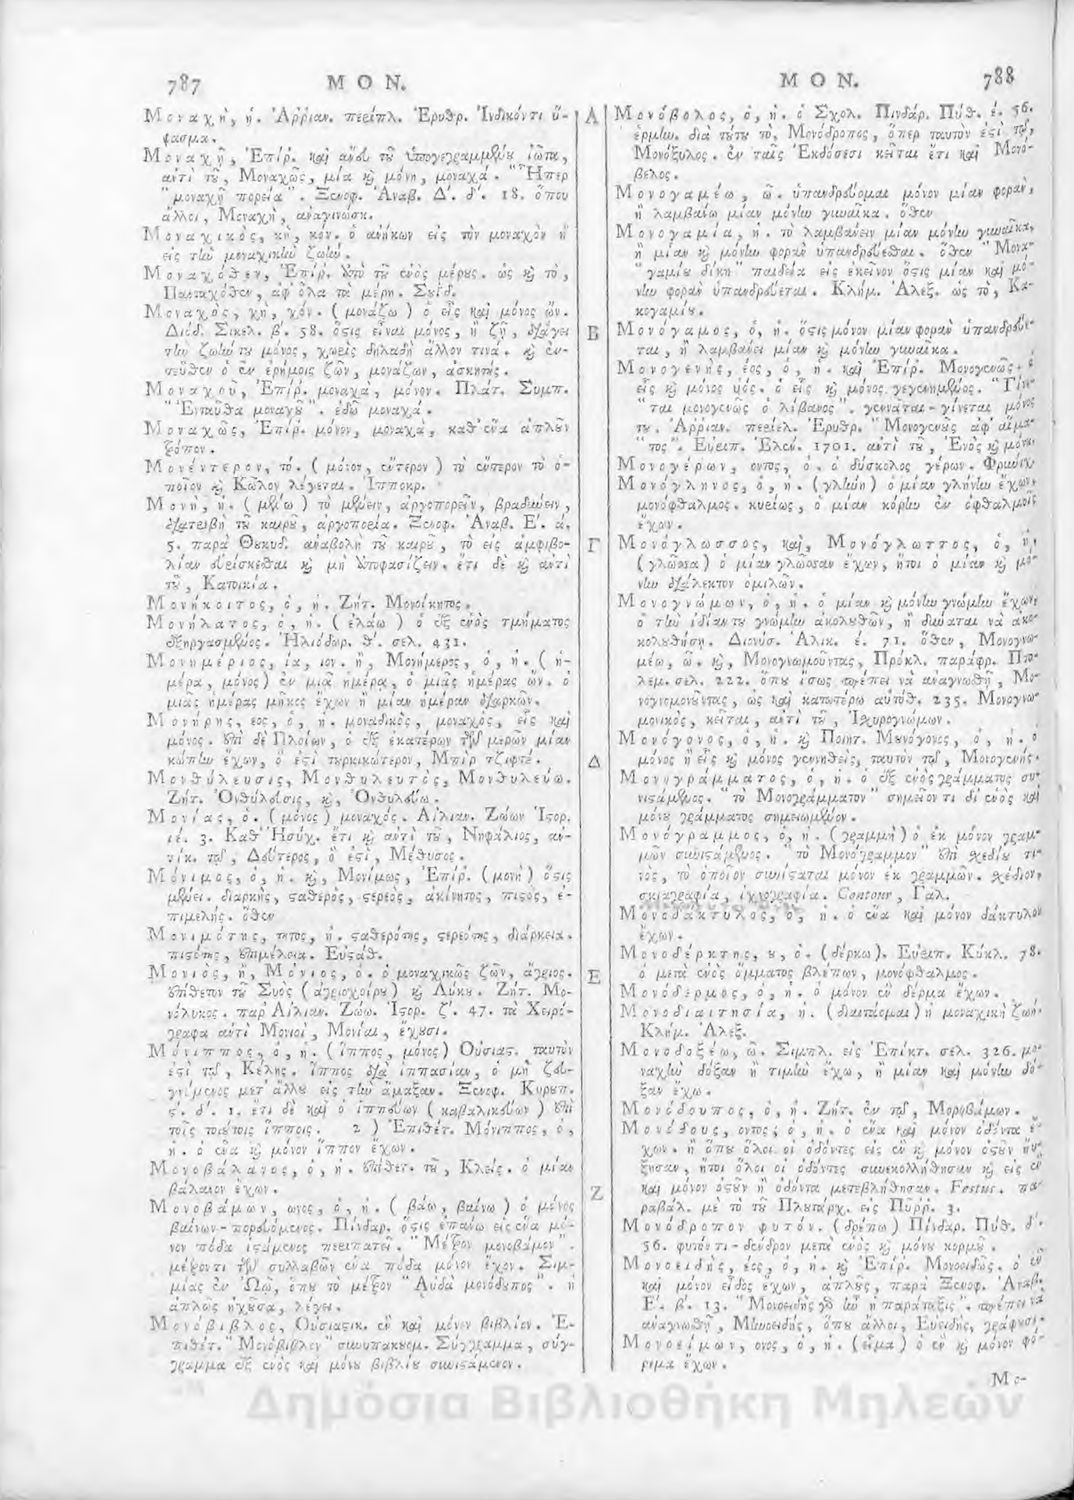 787 ΜΟΝ.
Μοναχὴ, ἡ. Ἀῤῥιαν. περίπλ. Ἐρυθρ. Ἰνδικόν τι ὕ-
φασμα.
Μοναχῇ, Ἐπίῤ. καὶ ἄνευ τοῦ ὑπογεγραμμένου ἰῶτα,
ἀντὶ τοῦ, Μοναχῶς, μία καὶ μόνη, μοναχά. "Ἧπερ
"μοναχῆ πορεία". Ξενοφ. Ἀναβ. Δ΄. δ΄. 18. ὅπου
ἄλλοι, Μοναχὴ, ἀναγινώσκ.
Μοναχικὸς, κὴ, κόν. ὁ ἀνήκων εἰς τὸν μοναχὸν ἢ
εἰς τὴν μοναχικὴν ζωήν.
Μοναχόθεν, Ἐπίῤ. ἀπὸ τοῦ ἑνὸς μέρους. ὡς καὶ τὸ,
Πανταχόθεν, ἀφ' ὅλα τὰ μέρη. Σουΐδ.
Μοναχὸς, χὴ, χόν. (μονάζω) ὁ εἷς καὶ μόνος ὤν.
Διόδ. Σικελ. β΄. 58. ὅστις εἶναι μόνος, ἢ ζῇ, διάγει
τὴν ζωήν του μόνος, χωρὶς δηλαδὴ ἄλλον τινά. καὶ ἐν-
τεῦθεν ὁ ἐν ἐρήμοις ζῶν, μονάζων, ἀσκητής.
Μοναχοῦ, Ἐπίῤ. μοναχά, μόνον. Πλάτ. Συμπ.
"Ἐνταῦθα μοναχοῦ". ἐδῶ μοναχά.
Μοναχῶς, Ἐπίῤ. μόνον, μοναχά, καθ' ἕνα ἁπλοῦν
τρόπον.
Μονέντερον, τό. (μόνον, ἔντερον) τὸ ἔντερον τὸ ὁ-
ποῖον καὶ Κῶλον λέγεται. Ἱπποκρ.
Μονὴ, ἡ. (μένω) τὸ μένειν, ἀργοπορεῖν, βραδύνειν,
διατριβὴ τοῦ καιροῦ, ἀργοπορία. Ξενοφ. Ἀναβ. Ε΄. ά.
5. παρὰ Θουκυδ. ἀναβολὴ τοῦ καιροῦ, τὸ εἰς ἀμφιβο-
λίαν εὑρίσκεσθαι καὶ μὴ ἀποφασίζειν. ἔτι δὲ καὶ ἀντὶ
τοῦ, Κατοικία.
Μονήκοιτος, ὁ, ἡ. Ζήτ. Μονοίκητος.
Μονήλατος, ὁ, ἡ. (ἐλάω) ὁ ἐξ ἑνὸς τμήματος
ἐξηργασμένος. Ἡλιόδωρ. θ΄. σελ. 431.
Μονημέριος, ία, ιον. ἢ, Μονήμερος, ὁ, ἡ. (ἡ-
μέρα, μόνος) ἐν μιᾷ ἡμέρᾳ, ὁ μιᾶς ἡμέρας ὤν. ὁ
μιᾶς ἡμέρας μῆκος ἔχων ἢ μίαν ἡμέραν διαρκῶν.
Μονήρης, εος, ὁ, ἡ. μοναδικὸς, μοναχὸς, εἷς καὶ
μόνος. ἐπὶ δὲ Πλοίων, ὁ ἐξ ἑκατέρων τῶν μερῶν μίαν
κώπην ἔχων, ὃ ἐστὶ τουρκικώτερον, Μπὶρ τζιφτέ.
Μονθύλευσις, Μονθυλευτὸς, Μονθυλεύω.
Ζήτ. Ὀνθύλευσις, καὶ, Ὀνθυλεύω.
Μονίας, ὁ. (μόνος) μοναχός. Αἰλιαν. Ζώων Ἱστορ.
ιέ. 3. Καθ' Ἡσύχ. ἔτι καὶ ἀντὶ τοῦ, Νηφάλιος, ἀν-
τίκ. τῷ, Δεύτερος, ὃ ἐστὶ, Μέθυσος.
Μόνιμος, ὁ, ἡ. καὶ, Μονίμως, Ἐπίῤ. (μονὴ) ὅστις
μένει. διαρκὴς, σταθερὸς, στερεὸς, ἀκίνητος, πιστὸς, ἐ-
πιμελής. ὅθεν
Μονιμότης, τητος, ἡ. σταθερότης, στερεότης, διάρκεια.
πιστότης, ἐπιμέλεια. Εὐστάθ.
Μονιὸς, ἢ, Μόνιος, ὁ. ὁ μοναχικῶς ζῶν, ἄγριος.
ἐπίθετον τοῦ Συὸς (ἀγριοχοίρου) καὶ Λύκου. Ζήτ. Μο-
νόλυκος. παρ' Αἰλιαν. Ζώω. Ἱστορ. ζ΄. 47. τὰ Χειρό-
γραφα ἀντὶ Μονιοὶ, Μονίαι, ἔχουσι.
Μόνιππος, ὁ, ἡ. (ἵππος, μόνος) Οὐσιαστ. ταυτὸν
ἐστὶ τῷ, Κέλης. ἵππος διὰ ἱππασίαν, ὁ μὴ ζευ-
γνύμενος μετ' ἄλλου εἰς τὴν ἅμαξαν. Ξενοφ. Κυρουπ.
ς΄. δ΄. 1. ἔτι δὲ καὶ ὁ ἱππεύων (καβαλικεύων) ἐπὶ
τοῖς τοιούτοις ἵπποις. 2) Ἐπιθέτ. Μόνιππος, ὁ,
ἡ. ὁ ἕνα καὶ μόνον ἵππον ἔχων.
Μονοβάλανος, ὁ, ἡ. ἐπίθετ. τοῦ, Κλείς. ὁ μίαν
βάλανον ἔχων.
Μονοβάμων, ωνος, ὁ, ἡ. (βάω, βαίνω) ὁ μόνος
βαίνων - πορευόμενος. Πίνδαρ. ὅστις ἐπάνω εἰς ἕνα μό-
νον πόδα ἱστάμενος περιπατεῖ. "Μέτρον μονοβάμον".
μέτρον τι τῶν συλλαβῶν ἕνα πόδα μόνον ἔχον. Σιμ-
μίας ἐν Ὠῷ, ὅπου τὸ μέτρον "Αὐδὰ μονόδουπος". ἡ
ἁπλῶς ἠχοῦσα, λέγει.
Μονόβιβλος, Οὐσιαστικ. ἓν καὶ μόνον βιβλίον. Ἐ-
πιθέτ. "Μονόβιβλον" συνυπακουομ. Σύγγραμμα, σύγ-
γραμμα ἐξ ἑνὸς καὶ μόνου βιβλίου συνιστάμενον.
Α
Β
Γ
Δ
Ε
Ζ
ΜΟΝ. 788
Μονόβολος, ὁ, ἡ. ὁ Σχολ. Πινδάρ. Πύθ. έ. 56.
ἑρμην. διὰ τούτου τὸ, Μονόδροπος, ὅπερ ταυτὸν ἐστὶ τῷ,
Μονόξυλος. ἐν ταῖς Ἐκδόσεσι κεῖται ἔτι καὶ Μονό-
βελος.
Μονογαμέω, ῶ. ὑπανδρεύομαι μόνον μίαν φορὰν,
ἢ λαμβάνω μίαν μόνην γυναῖκα. ὅθεν
Μονογαμία, ἡ. τὸ λαμβάνειν μίαν μόνην γυναῖκα,
ἢ μίαν καὶ μόνην φορὰν ὑπανδρεύεσθαι. ὅθεν "Μονο-
"γαμίου δίκη" παιδεία εἰς ἐκεῖνον ὅστις μίαν καὶ μό-
νην φορὰν ὑπανδρεύεται. Κλήμ. Ἀλεξ. ὡς τὸ, Κα-
κογαμίου.
Μονόγαμος, ὁ, ἡ. ὅστις μόνον μίαν φορὰν ὑπανδρεύε-
ται, ἢ λαμβάνει μίαν καὶ μόνην γυναῖκα.
Μονογενὴς, έος, ὁ, ἡ. καὶ Ἐπίῤ. Μονογενῶς. ὁ
εἷς καὶ μόνος υἱός. ὁ εἷς καὶ μόνος γεγεννημένος. "Γίνε-
"ται μονογενῶς ὁ λίβανος". γεννᾶται - γίνεται μόνος
του. Ἀῤῥιαν. περίπλ. Ἐρυθρ. "Μονογενοῦς ἀφ' αἵμα-
"τος". Εὐριπ. Ἑλέν. 1701. ἀντὶ τοῦ, Ἑνὸς καὶ μόνου.
Μονογέρων, οντος, ὁ. ὁ δύσκολος γέρων. Φρύνιχ.
Μονόγληνος, ὁ, ἡ. (γλήνη) ὁ μίαν γλήνην ἔχων,
μονόφθαλμος. κυρίως, ὁ μίαν κόρην ἐν ὀφθαλμοῖς
ἔχων.
Μονόγλωσσος, καὶ, Μονόγλωττος, ὁ, ἡ,
(γλῶσσα) ὁ μίαν γλῶσσαν ἔχων, ἤτοι ὁ μίαν καὶ μό-
νην διάλεκτον ὁμιλῶν.
Μονογνώμων, ὁ, ἡ. ὁ μίαν καὶ μόνην γνώμην ἔχων,
ὁ τὴν ἰδίαν του γνώμην ἀκολουθῶν, ἢ δύναται νὰ ἀκο-
κολουθήσῃ. Διονύσ. Ἁλικ. έ. 71. ὅθεν, Μονογνω-
μέω, ῶ. καὶ, Μονογνωμοῦντας, Πρόκλ. παράφρ. Πτο-
λεμ. σελ. 222. ὅπου ἴσως πρέπει νὰ ἀναγνωσθῇ, Μο-
νογνωμονοῦντας, ὡς καὶ κατωτέρω αὐτόθ. 235. Μονογνω-
μονικὸς, κεῖται, ἀντὶ τοῦ, Ἰσχυρογνώμων.
Μονόγονος, ὁ, ἡ. καὶ Ποιητ. Μουνόγονος, ὁ, ἡ. ὁ
μόνος ἢ εἷς καὶ μόνος γεννηθεὶς, ταυτὸν τῷ, Μονογενής.
Μονογράμματος, ὁ, ἡ. ὁ ἐξ ἑνὸς γράμματος συ-
νιστάμενος. "τὸ Μονογράμματον" σημεῖόν τι δι' ἑνὸς καὶ
μόνου γράμματος σημειωμένον.
Μονόγραμμος, ὁ, ἡ. (γραμμὴ) ὁ ἐκ μόνον γραμ-
μῶν συνιστάμενος. "τὸ Μονόγραμμον" ἐπὶ σχεδίου τι-
νὸς, τὸ ὁποῖον συνίσταται μόνον ἐκ γραμμῶν. σχέδιον,
σκιαγραφία, ἰχνογραφία. Contour, Γαλ.
Μονοδάκτυλος, ὁ, ἡ. ὁ ἕνα καὶ μόνον δάκτυλον
ἔχων.
Μονοδέρκτης, ου, ὁ. (δέρκω). Εὐριπ. Κύκλ. 78.
ὁ μετὰ ἑνὸς ὄμματος βλέπων, μονόφθαλμος.
Μονόδερμος, ὁ, ἡ. ὁ μόνον ἓν δέρμα ἔχων.
Μονοδιαιτησία, ἡ. (διαιτάομαι) ἡ μοναχικὴ ζωή.
Κλήμ. Ἀλεξ.
Μονοδοξέω, ῶ. Σιμπλ. εἰς Ἐπίκτ. σελ. 326. μο-
ναχὴν δόξαν ἢ τιμὴν ἔχω, ἢ μίαν καὶ μόνην δό-
ξαν ἔχω.
Μονόδουπος, ὁ, ἡ. Ζήτ. ἐν τῷ, Μονοβάμων.
Μονόδους, οντος, ὁ, ἡ. ὁ ἕνα καὶ μόνον ὀδόντα ἔ-
χων. ἢ ὅπου ὅλοι οἱ ὀδόντες εἰς ἓν καὶ μόνον ὀστοῦν ηὔ-
ξησαν, ἤτοι ὅλοι οἱ ὀδόντες συνεκολλήθησαν καὶ εἰς ἓν
καὶ μόνον ὀστοῦν ἢ ὀδόντα μετεβλήθησαν. Festus. πα-
ραβάλ. μὲ τὸ τοῦ Πλουτάρχ. εἰς Πύῤῥ. 3.
Μονόδροπον φυτόν. (δρέπω) Πίνδαρ. Πύθ. έ.
56. φυτόν τι - δένδρον μετὰ ἑνὸς καὶ μόνου κορμοῦ.
Μονοειδὴς, έος, ὁ, ἡ. καὶ Ἐπίῤ. Μονοειδῶς. ὁ ἓν
καὶ μόνον εἶδος ἔχων, ἁπλοῦς, παρὰ Ξενοφ. Ἀναβ.
Ε΄. β΄. 13. "Μονοειδὴς γὰρ ἦν ἡ παράταξις". πρέπει νὰ
ἀναγνωσθῇ, Μηνοειδὴς, ὅπου ἄλλοι, Εὐειδὴς, γράφουσι.
Μονοείμων, ονος, ὁ, ἡ. (εἷμα) ὁ ἓν καὶ μόνον φό-
ρεμα ἔχων.
Μο-
Δημόσια Βιβλιοθήκη Μηλεών